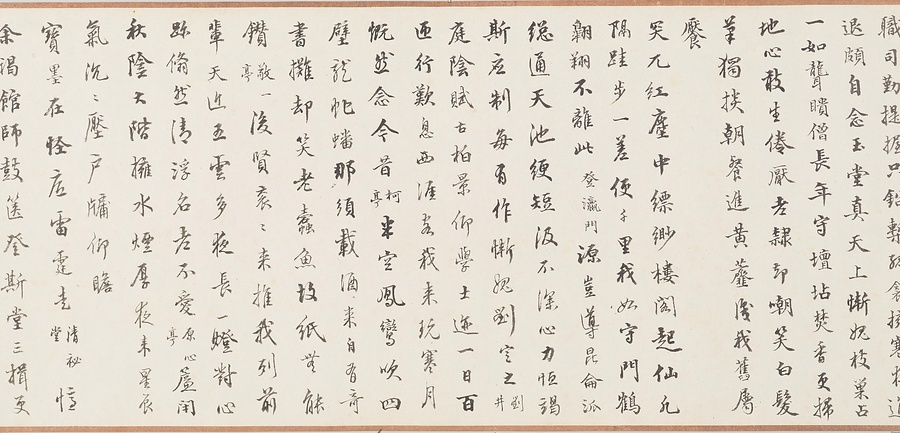 職司勤提握只鉛槧
退頗自念玉堂真天上慚媿枝巢占
一如聾瞶僧長年守壇坫焚香更掃
地心敢生倦厭老隸即嘲笑白髮
筆獨掞朝餐進黃虀後我舊屬
饜
笑兀紅塵中縹緲樓閣起仙凡
隔跬步一差便千里我如守門鶴
翱翔不離此登瀛門源豈導昆侖派
總通天池綆短汲不深心力恒竭
斯應制每有作慚媿劉文定之劉井
庭陰賦古柏景仰學士迹一日百
匝行歎息西涯老我來玩寒月
慨然念今昔柯亭半空鳳鸞吹四
壁龍蛇蟠那須載酒來自有奇
書攤却笑老蠹魚故紙無能
鑽敬一亭後賢袞袞來推我列前
輩天近五雲多夜長一燈對心
跡翛然清浮名老不愛原心亭簾閒
秋陰大階擁水煙厚夜來星辰
氣沉沉壓戶牖仰瞻
寶墨在怪底雷霆走清祕堂恒
余謁館師鼓篋登斯堂三揖更